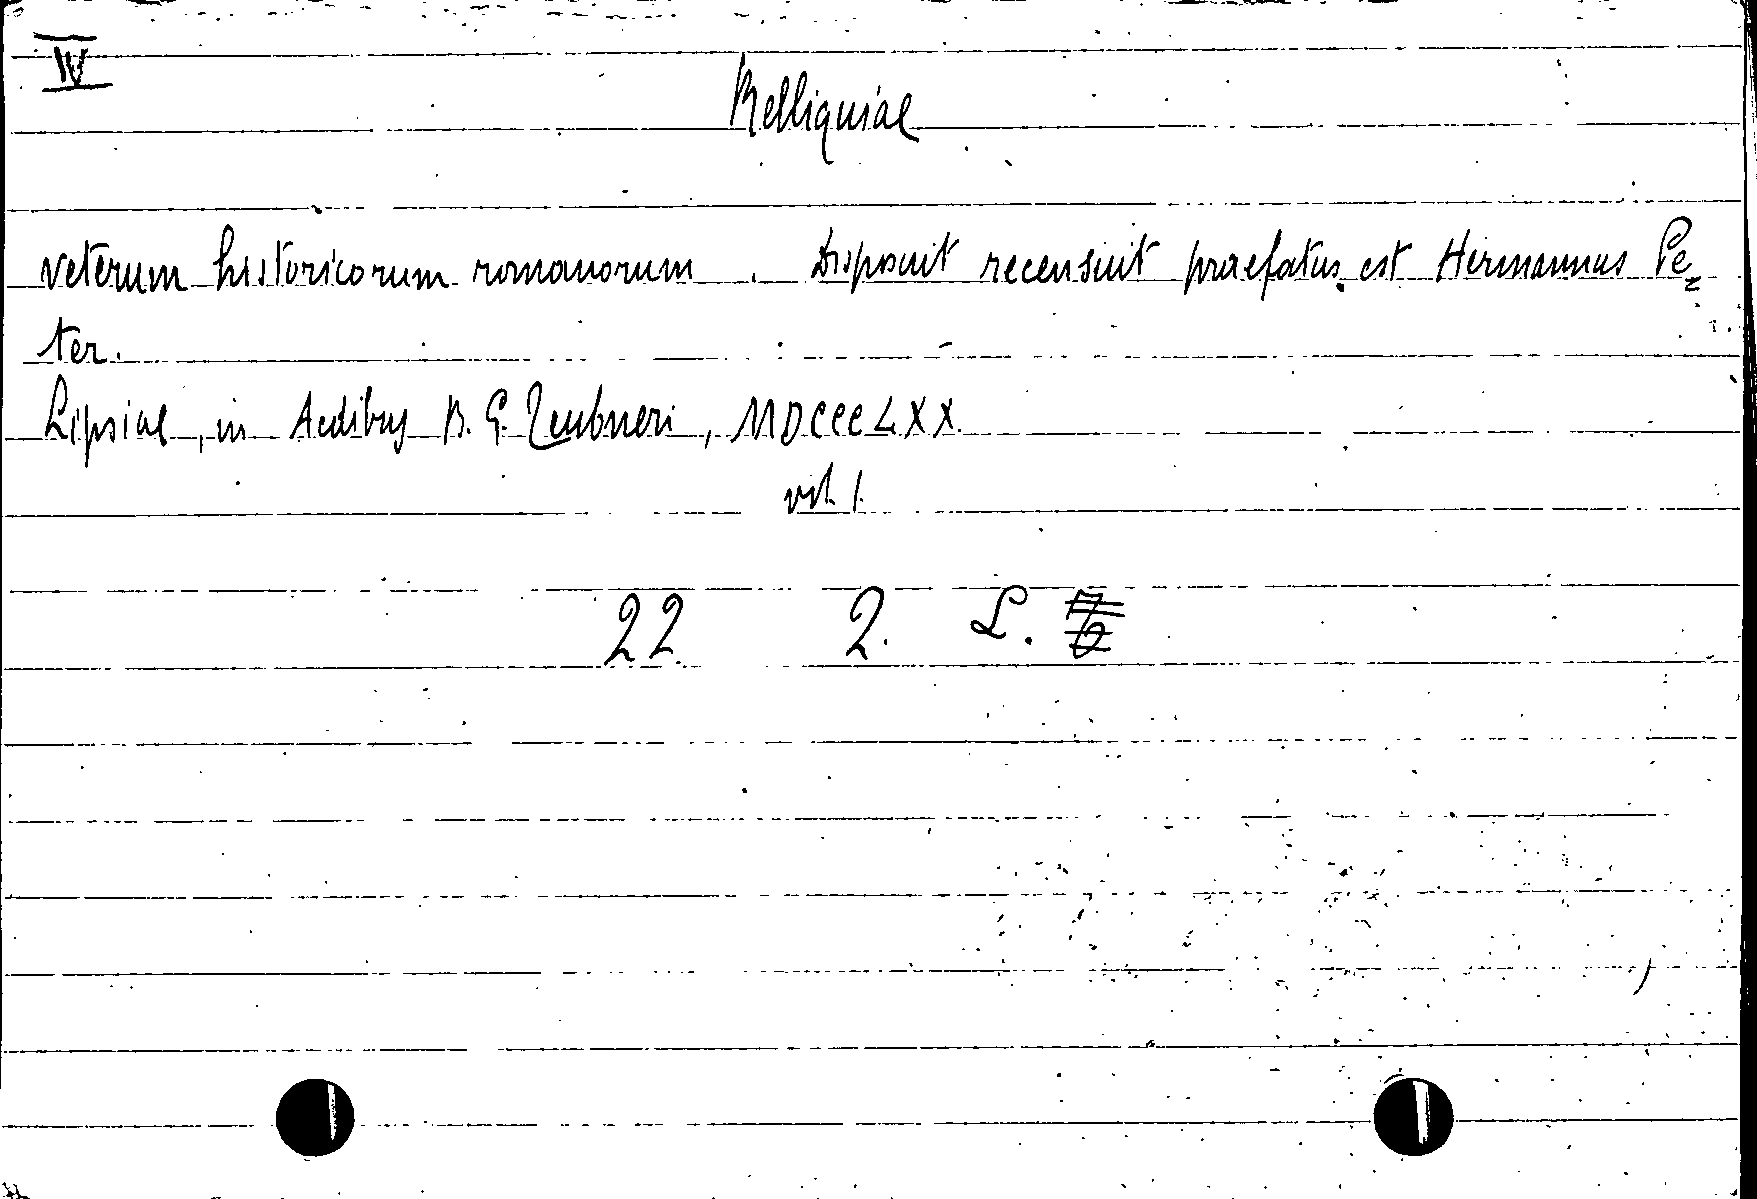 IV
Relliquiae
veterum historicorum romanorum . Disposuit recensuit praefatus est Hermannus Pe=
ter.
Lipsiae, in Aedibus B. G. Teubneri, MDCCCLXX
vol. I.
22 2. L.